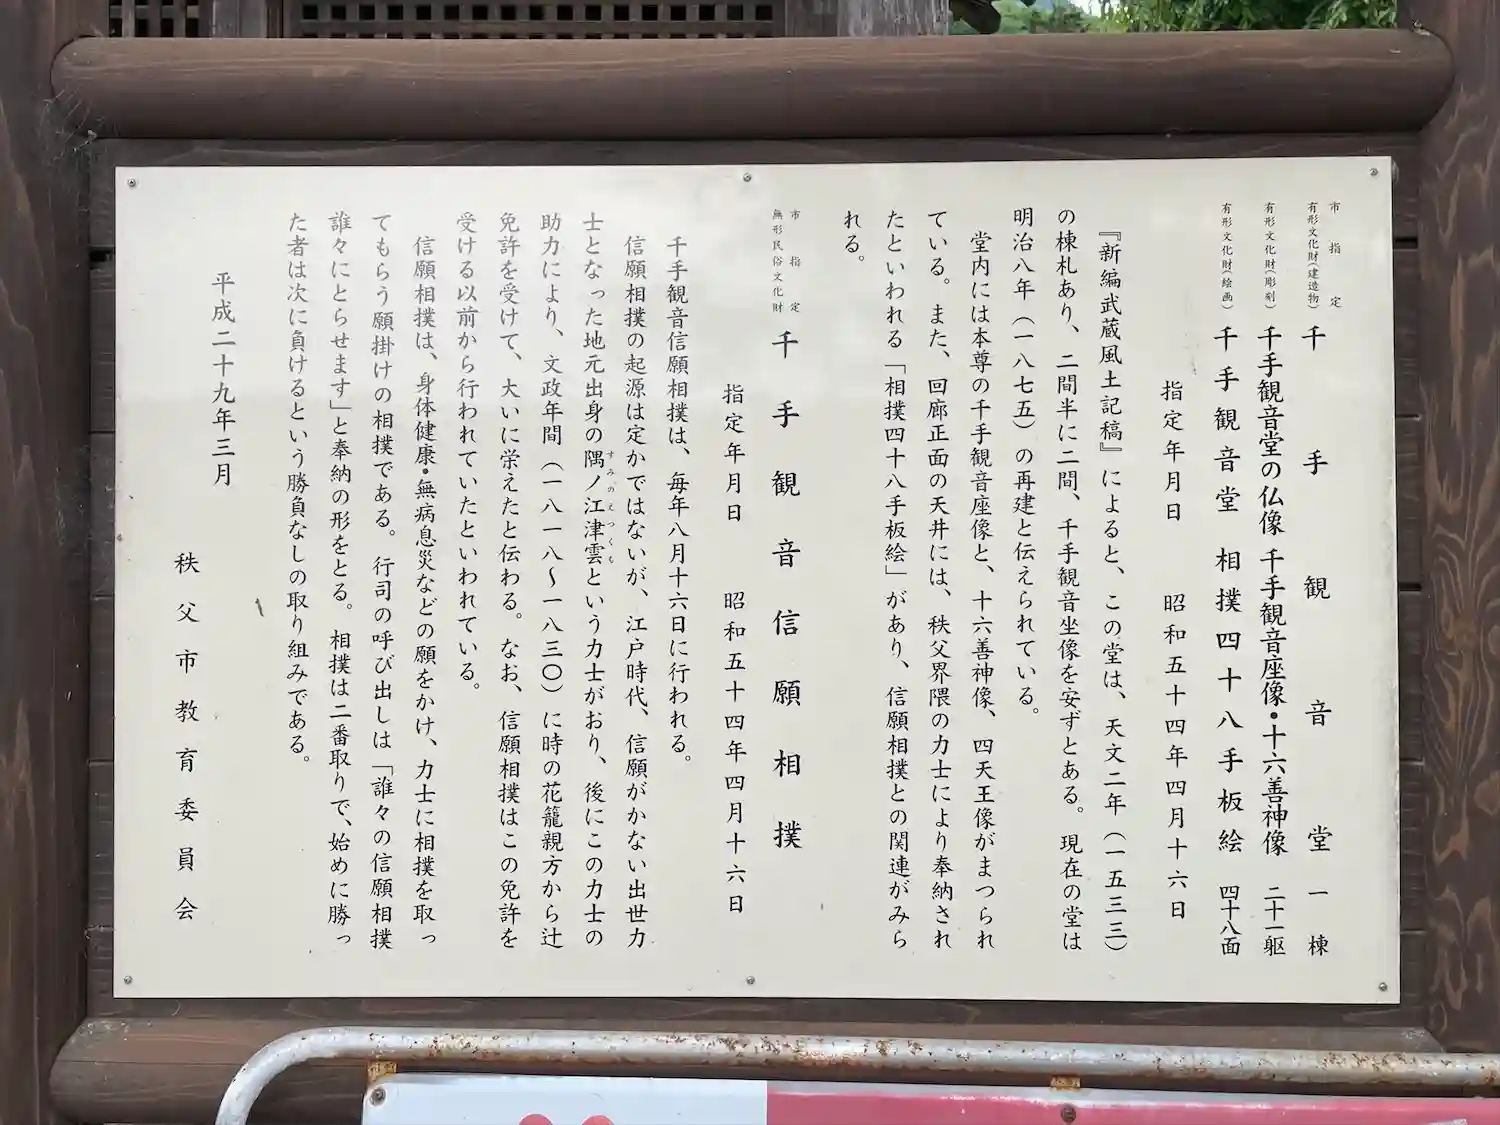 市指定
有形文化財(建造物) 千手観音堂 一棟
有形文化財(彫刻) 千手観音堂の仏像 千手観音座像・十六善神像 二十一躯
有形文化財(絵画) 千手観音堂 相撲四十八手板絵 四十八面
指定年月日 昭和五十四年四月十六日
『新編武蔵風土記稿』によると、この堂は、天文二年（一五三三）
の棟札あり、二間半に二間、千手観音坐像を安ずとある。現在の堂は
明治八年（一八七五）の再建と伝えられている。
堂内には本尊の千手観音座像と、十六善神像、四天王像がまつられ
ている。また、回廊正面の天井には、秩父界隈の力士により奉納され
たといわれる「相撲四十八手板絵」があり、信願相撲との関連がみら
れる。
市指定
無形民俗文化財 千手観音信願相撲
指定年月日 昭和五十四年四月十六日
千手観音信願相撲は、毎年八月十六日に行われる。
信願相撲の起源は定かではないが、江戸時代、信願がかない出世力
士となった地元出身の隅ノ江津雲という力士がおり、後にこの力士の
すみのえつくも
助力により、文政年間（一八一八～一八三〇）に時の花籠親方から辻
免許を受けて、大いに栄えたと伝わる。なお、信願相撲はこの免許を
受ける以前から行われていたといわれている。
信願相撲は、身体健康・無病息災などの願をかけ、力士に相撲を取っ
てもらう願掛けの相撲である。行司の呼び出しは「誰々の信願相撲
誰々にとらせます」と奉納の形をとる。相撲は二番取りで、始めに勝っ
た者は次に負けるという勝負なしの取り組みである。
平成二十九年三月
秩父市教育委員会